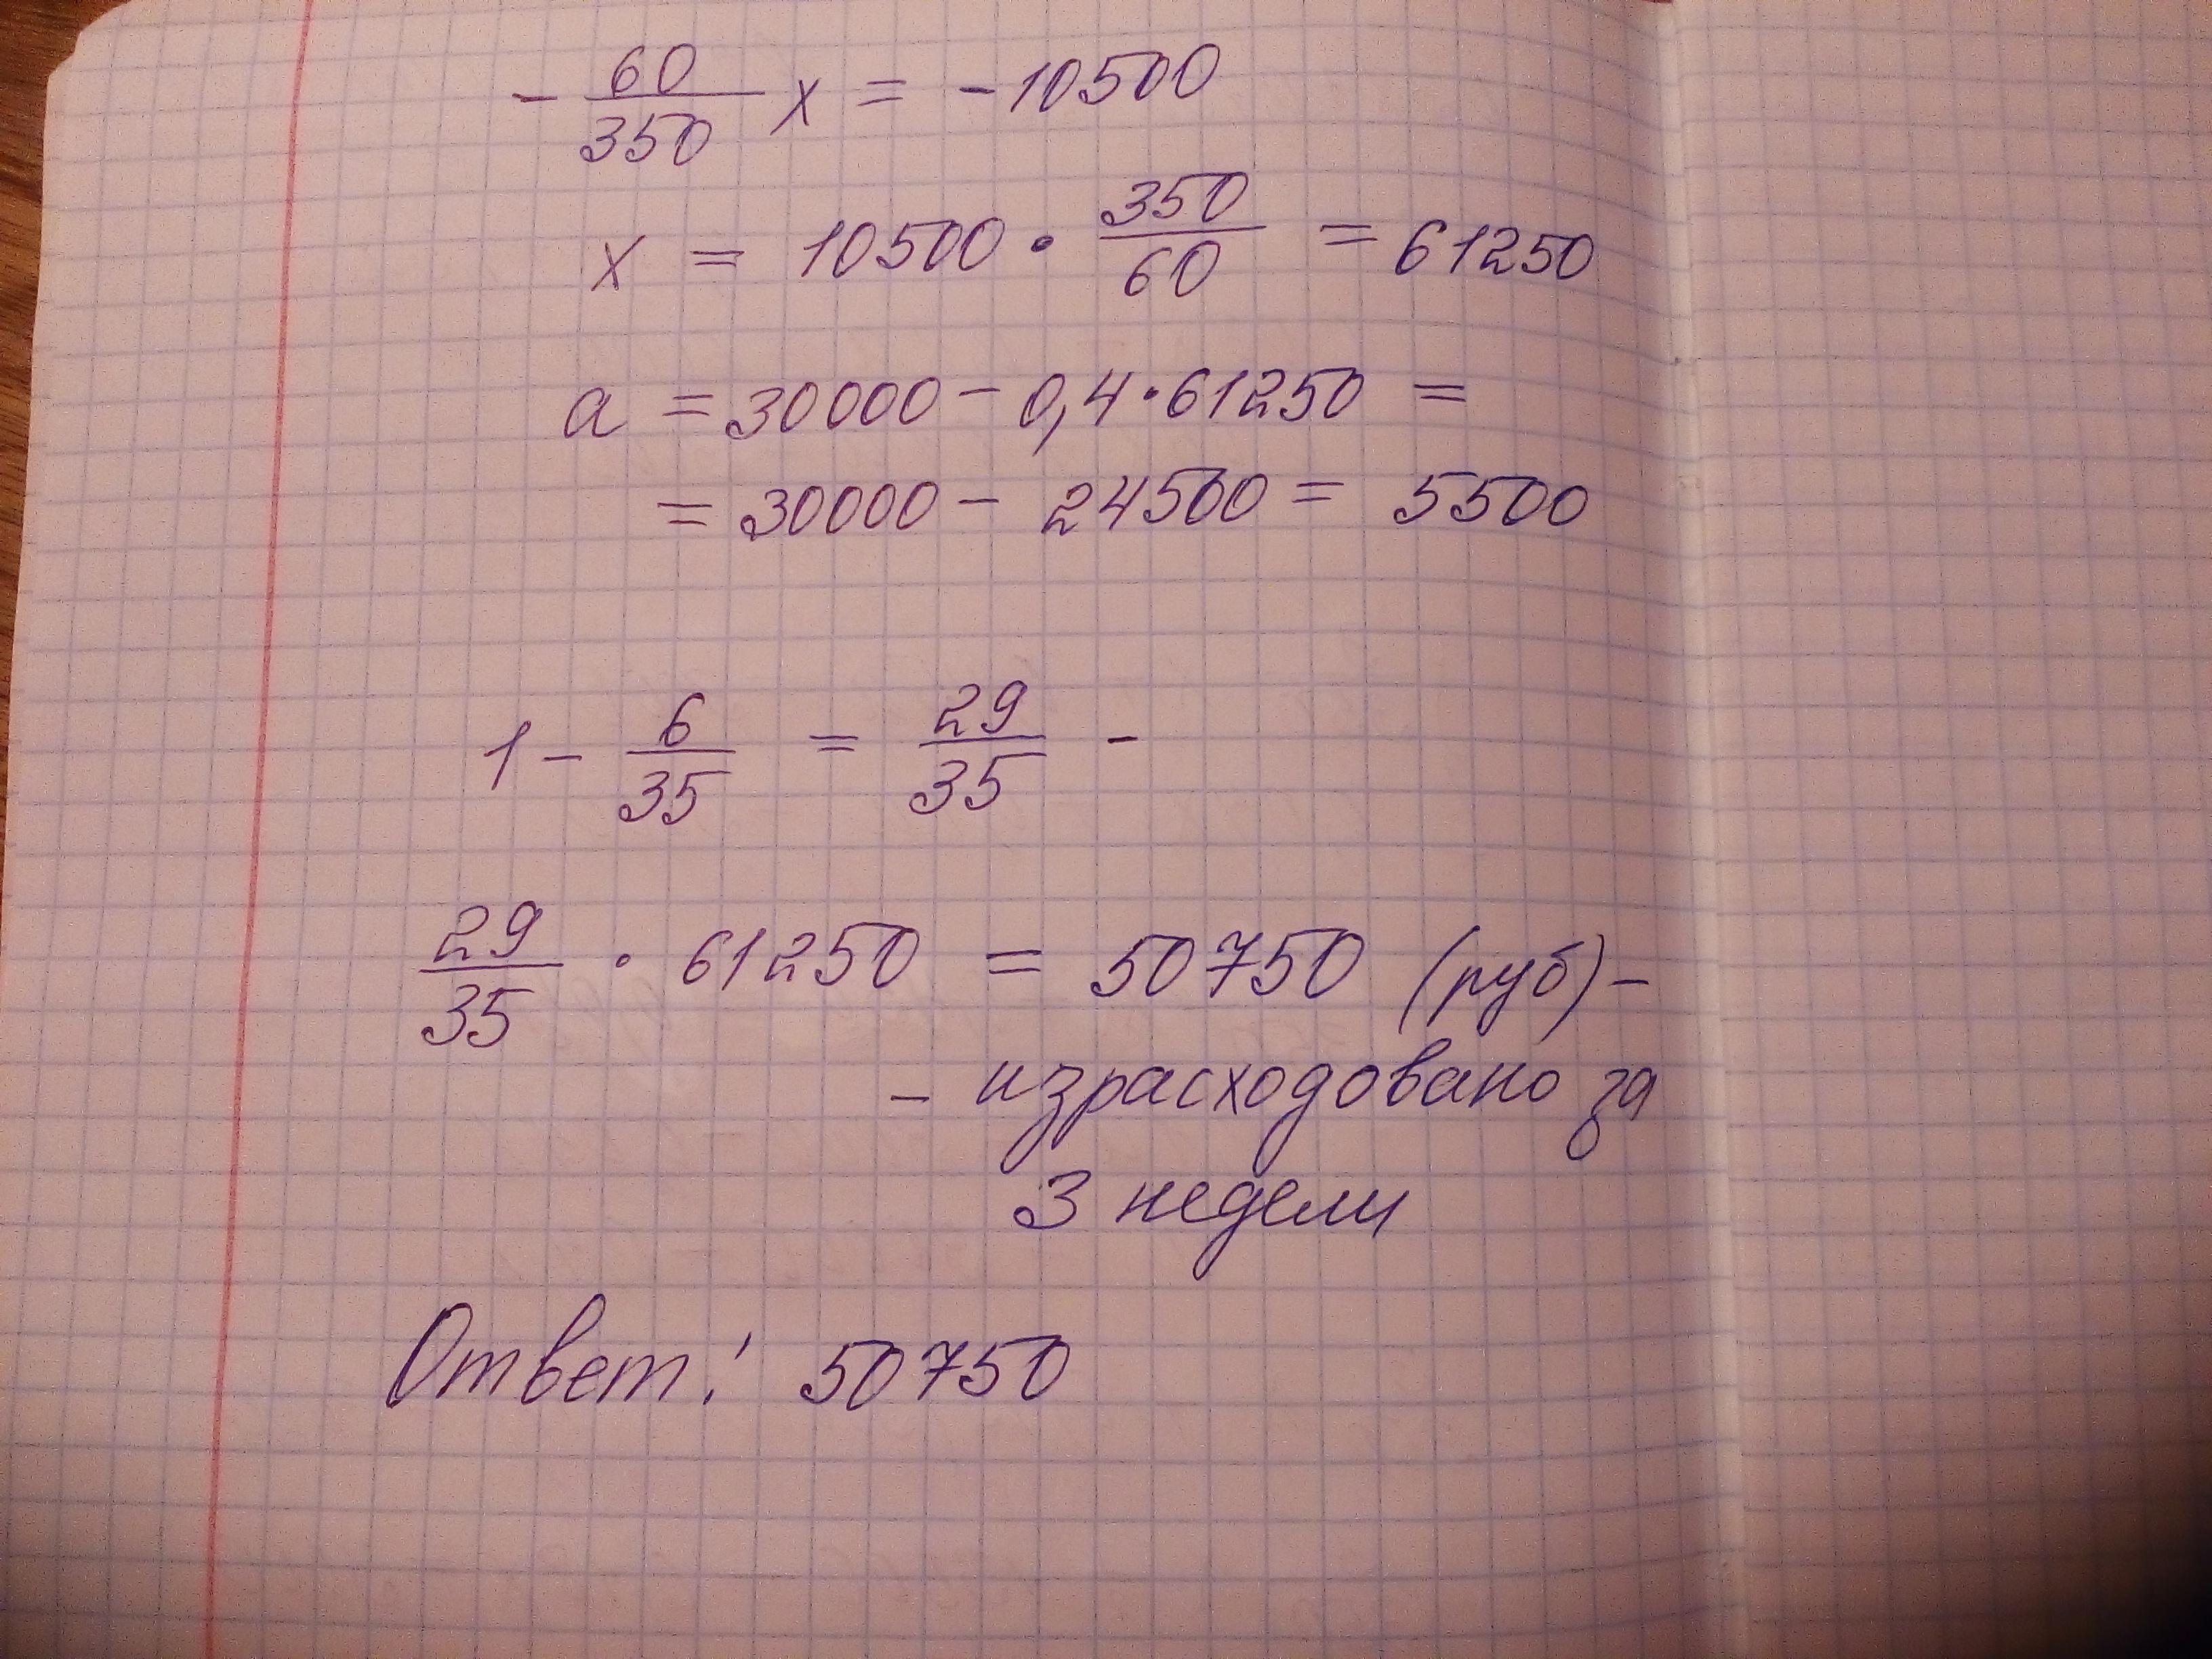 - 60/350 x = -10500
x = 10500 · 350/60 = 61250
a = 30000 - 0,4 · 61250 =
= 30000 - 24500 = 5500
1 - 6/35 = 29/35 -
29/35 · 61250 = 50750 (руб) -
- израсходовано за
3 недели
Ответ: 50750